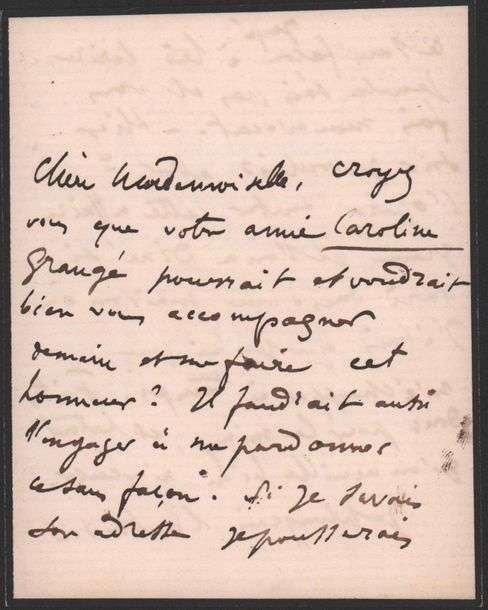 Chère Mademoiselle, croyez
vous que votre amie Caroline
Grangé pourrait et voudrait
bien vous accompagner
demain et me faire cet
honneur? Il faudrait aussi
l'engager à me pardonner
ce sans façon. Si je savais
son adresse je pousserais